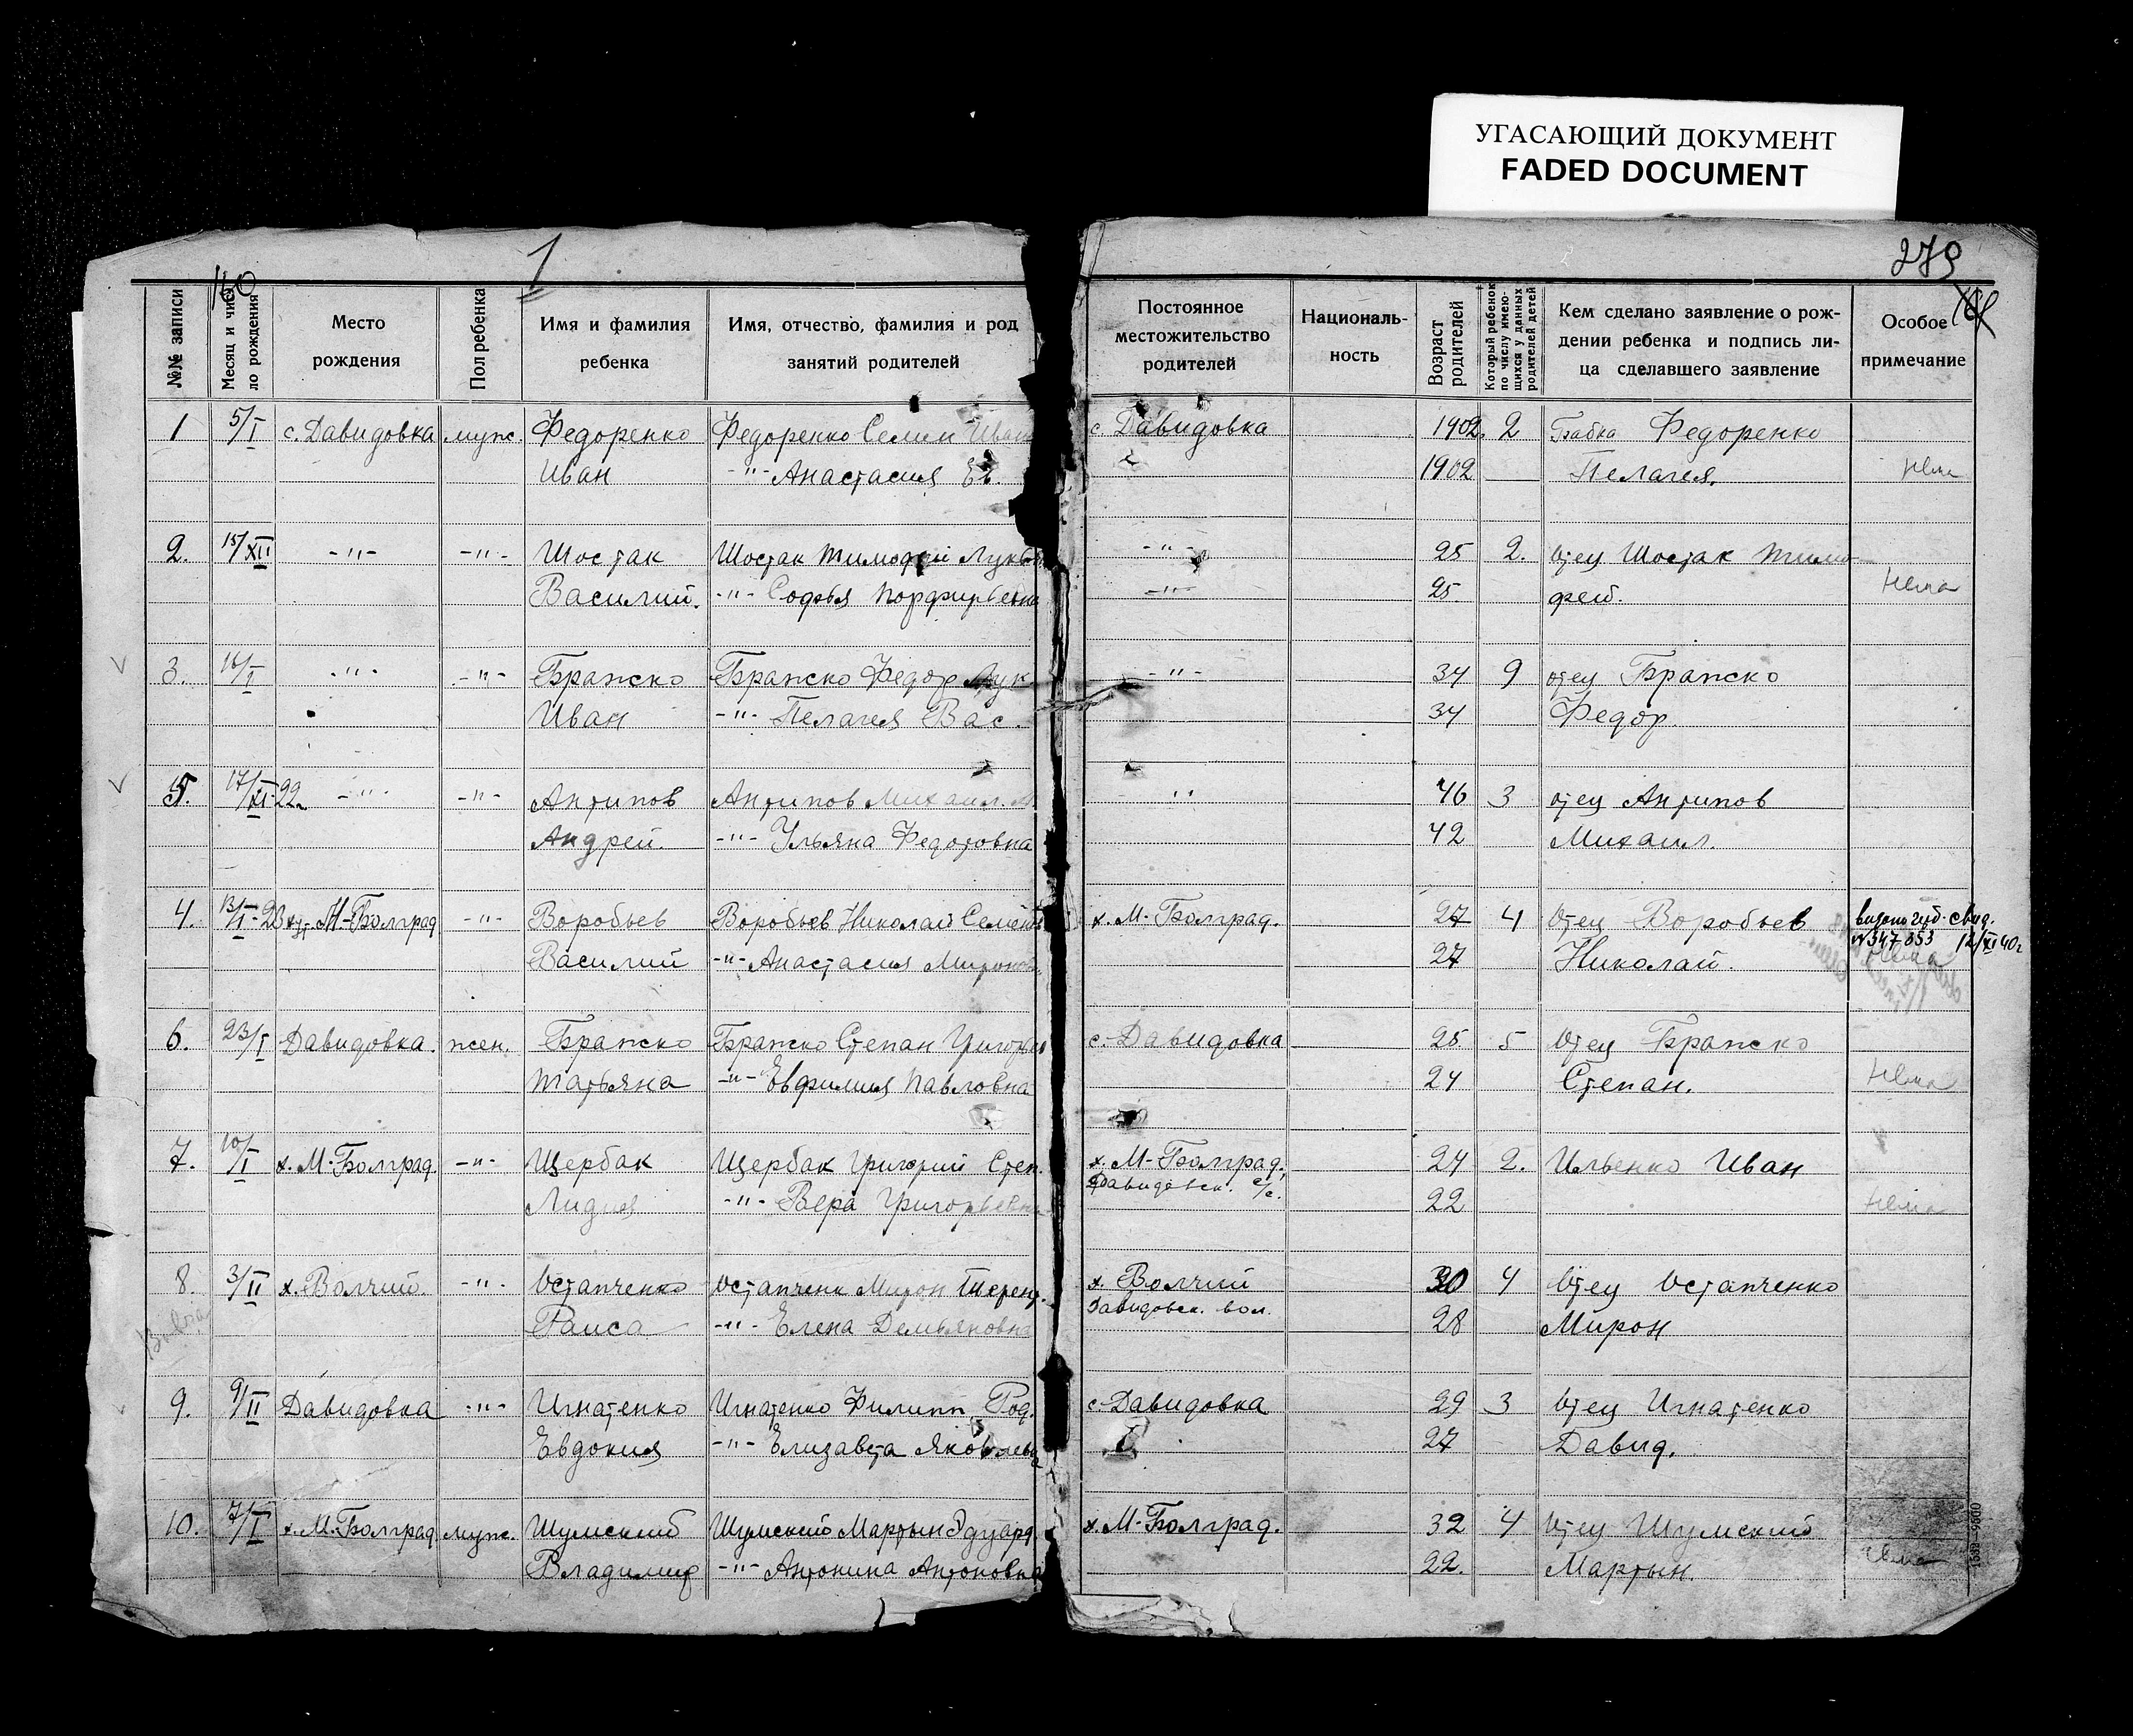 УГАСАЮЩИЙ ДОКУМЕНТ
FADED DOCUMENT
1
279
160
№№ записи
Месяц и число рождения
Место рождения
Пол ребенка
Имя и фамилия ребенка
Имя, отчество, фамилия и род занятий родителей
Постоянное местожительство родителей
Националь-ность
Возраст родителей
Который ребенок по числу имею-щихся у данных родителей детей
Кем сделано заявление о рож-дении ребенка и подпись ли-ца сделавшего заявление
Особое примечание
1 5/I с. Давидовка муж. Федоренко Федоренко Семен Иван с Давидовка 1902. 2 Бабка Федоренко
Иван -"- Анастасия Ев. 1902 Пелагея. Нема
2. 15/XII -"- -"- Шостак Шостак Тимофей Лукья -"- 25 2. Отец Шостак Тимо
Василий. -"- Софья Порфирьевна -"- 25. фей. Нема
3. 16/I -"- -"- Бражко Бражко Федор Лук -"- 34 9 отец Бражко
Иван -"- Пелагея Вас. 34 Федор.
5. 17/XI-22г. -"- -"- Антипов Антипов Михаил. М. " 46 3 отец Антипов
Андрей. -"- Ульяна Федотовна 42 Михаил.
4. 13/I-23 хут. М-Болград -"- Воробьев Воробьев Николай Семён х. М-Болград. 27 4 Отец Воробьев видано свид.
№347353 12/XI 40г
Василий -"- Анастасия Мирон 27 Николай. Нема
6. 23/I Давидовка. жен. Бражко Бражко Степан Григорьев с. Давидовка 25 5 Отец Бражко
Татьяна -"- Евфимия Павловна 24 Степан. Нема
7. 10/I х. М-Болград. -"- Щербак Щербак Григорий Степ. х. М-Болград, 24 2. Ильенко Иван
Давидовск. с/с.
Лидия -"- Вера Григорьевна 22 Нема
8. 3/II х. Волчий. -"- Остапченко Остапченк Мирон Терент. х. Волчий 30 4 Отец Остапченко
Давидовск. вол.
Раиса -"- Елена Демьяновна 28 Мирон
9. 9/II Давидовка -"- Игнатенко Игнатенко Филипп Род. с Давидовка 29 3 Отец Игнатенко
Евдокия -"- Елизавета Яковлевна 27 Давид.
10. 7/I х. М.Болград муж. Шумский Шумский Мартын Эдуард х. М-Болград. 32 4 Отец Шумский
Владимир -"- Антонина Антоновна 22. Мартын. Нема